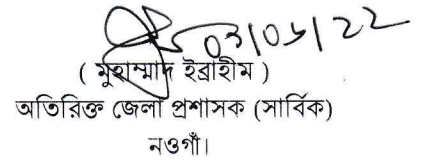 03/05/22
( মুহাম্মাদ ইব্রাহীম )
অতিরিক্ত জেলা প্রশাসক (সার্বিক)
নওগাঁ।